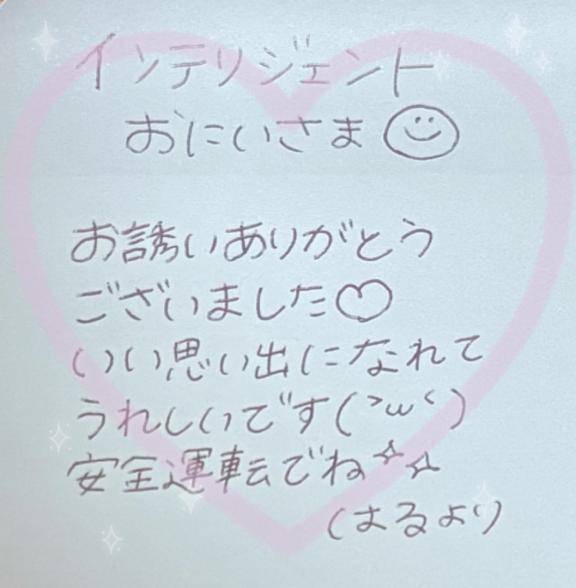 インテリジェント
おにいさま☺
お誘いありがとう
ございました♡
いい思い出になれて
うれしいです(>ω<)
安全運転でね☆☆
はるより